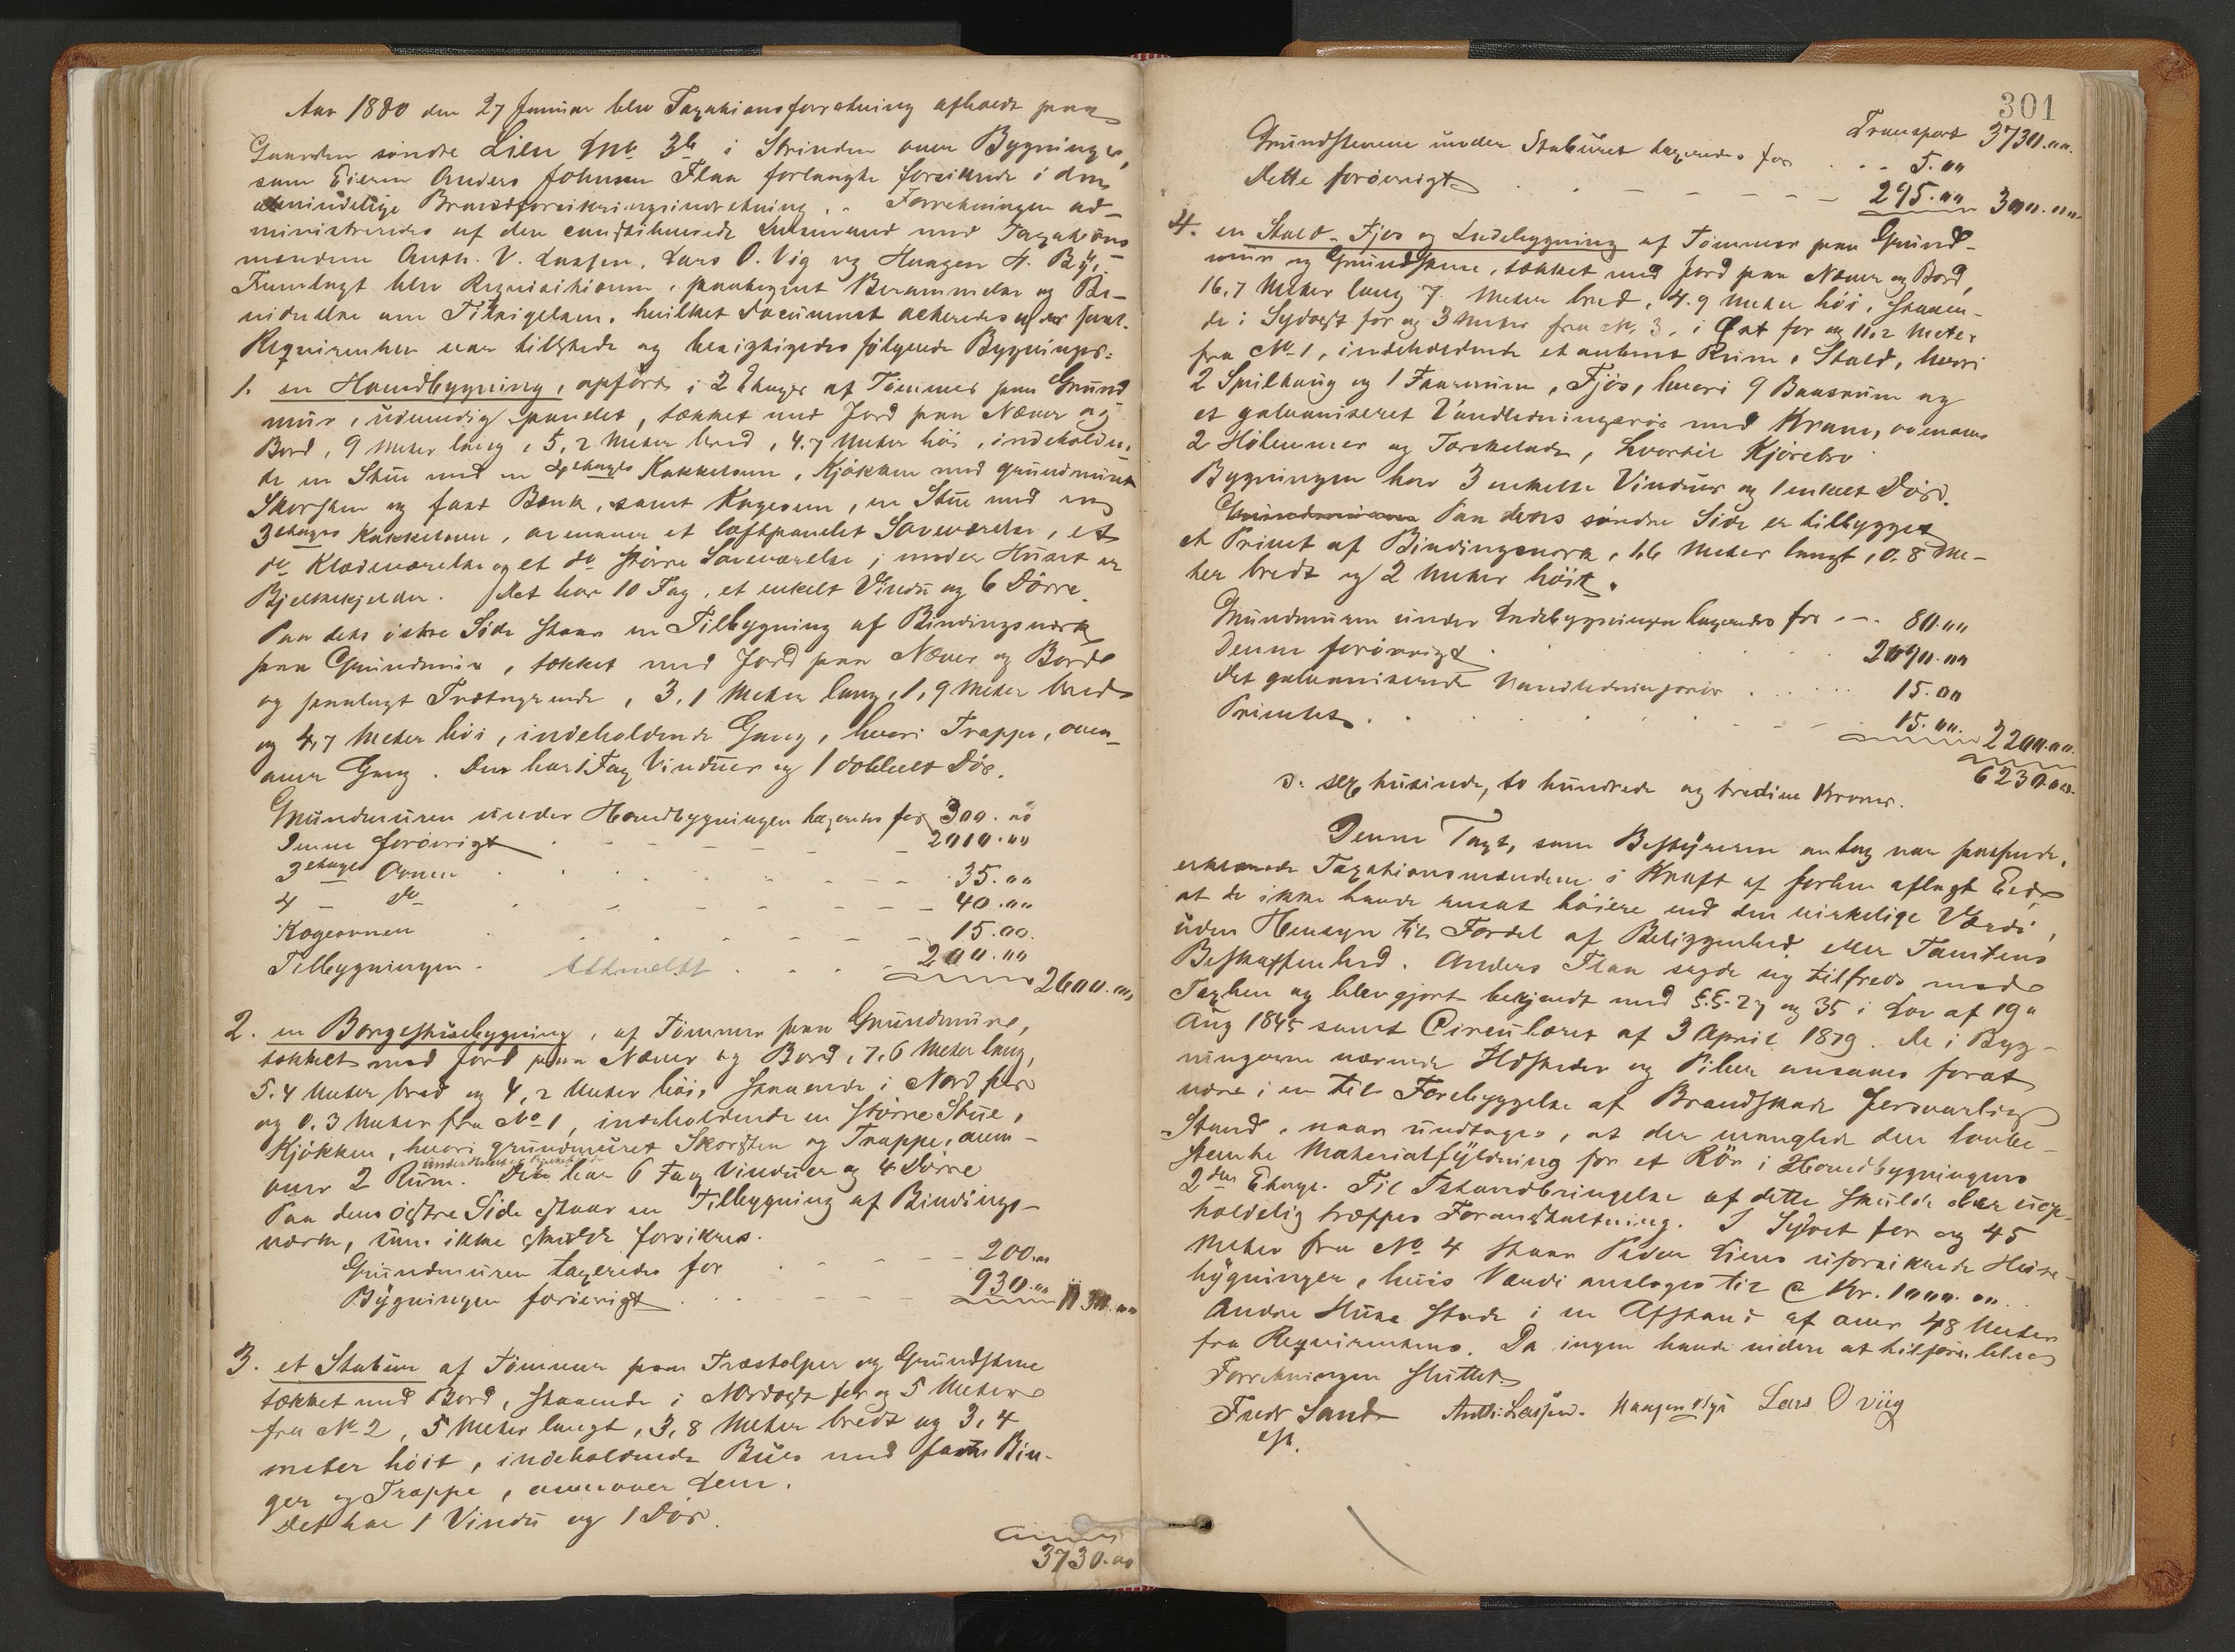 Aar 1880 den 27 Januar blev Taxationsforretning afholdt paa
Gaarden søndre Lien Gno 3b i Strinden over Bygninger,
som Eieren Anders Johnsen Flaa forlangte forsikrede i den
almindelige Brandforsikringsindretning. Forretningen ad-
ministreredes af den constituerede Lensmand med Taxations
mændene Anth. V. Laassen, Lars O. Vig og Haagen H. By.
Fremlagt blev Requisitionen, paategnet Berammelse og Be-
vidnelse om Tilsigelsen, hvilket Document acteredes
Requirenten var tilstede og besigtigedes følgende Bygninger:
1. en Hovedbygning, opført i 2 Etager af Tømmer paa Grund
mur, udvendig panelet, tækket med Jord paa Næver og
Bord, 9 Meter lang, 5,2 Meter bred, 4.7 Meter høi, indeholden-
de en Stue med en 4 etages Kakkelovn, Kjøkken med grundmuret
Skorsten og fast Bænk, samt Kogeovn, en Stue med en
3 etages Kakkelovn, ovenover et loftpanelet Soveværelse, et
do Klædeværelse og et do større Soveværelse; under Huset er
Bjelkekjelder. Det har 10 Fag, et enkelt Vindu og 6 Dørre.
Paa dets østre Side staar en Tilbygning af Bindingsværk
paa Grundmur, tækket med Jord paa Næver og Bord
og paalagt Trætagrende, 3,1 Meter lang, 1,9 Meter bred
og 4,7 Meter høi, indeholdende Gang, hvori Trappe, oven-
over Gang. Den har 1 Fag Vinduer og 1 dobbelt Dør.
Grundmuren under Hovedbygningen taxeredes for 300.00
Denne forøvrigt 2010.00
3 etages Ovnen 35.00
4 - do 40.00
Kogeovnen 15.00
Tilbygningen 200.00
2600.00
2. en Borgestuebygning, af Tømmer paa Grundmure,
tækket med Jord paa Næver og Bord, 7,6 Meter lang,
5.4 Meter bred og 4,2 Meter høi, staaende i Nord for
og 0.3 Meter fra No 1, indeholdende en større Stue,
Kjøkken, hvori grundmuret Skorsten og Trappe, oven-
over 2 Rum. under Huset er Kjelder Den har 6 Fag Vinduer og 4 Dørre
Paa dens østre Side staar en Tilbygning af Bindings-
værk, som ikke skulde forsikres.
Grundmuren taxeredes for 200.00
Bygningen forøvrigt 930.00 1130.00
3. et Stabur af Tømmer paa Træstolper og Grundstene
tækket med Bord, staaende i Nordost for og 5 Meter
fra No 2, 5 Meter langt, 3,8 Meter bredt og 3,4
meter høit, indeholdende Bur med faste Bin-
ger og Trappe, ovenover Lem.
Det har 1 Vindu og 1 Dør.
3730.00
301
Transport 3730.00
Grundstenene under Staburet taxeredes for 5.00
Dette forøvrigt 295.00 300.00
4. en Stald- Fjos og Ladebygning af Tømmer paa Grund-
mur og Grundstene, tækket med Jord paa Næver og Bord,
16.7 Meter lang 7 Meter bred, 4.9 Meter høi, staaen-
de i Sydost for og 3 Meter fra No 3, i Øst for og 11.2 Meter
fra No 1, indeholdende et aabent Rum, Stald, hvori
2 Spiltaug og 1 Faarerum, Fjøs, hvori 9 Baasrum og
et galvaniseret Vandledningsrør med Kran, ovenover
2 Hølemmer og Tærskelade, hvortil Kjørebro
Bygningen har 3 enkelte Vinduer og 1 enkelt Dør.
Paa dens søndre Side er tilbygget
et Privet af Bindingsværk, 1.6 Meter langt, 0.8 Me-
ter bredt og 2 Meter høit.
Grundmuren under Ladebygningen taxeredes for 80.00
Denne forøvrigt 2090.00
Det galvaniserede Vandledningsrør 15.00
Privetet 15.00 2200.00
6230.00
o: sex tusinde, to hundrede og tredive Kroner.
Denne Taxt, som Bestyreren antog var passende,
erklærede Taxationsmændene i Kraft af forhen aflagt Eed,
at de ikke havde ansat høiere end den virkelige Værdi,
uden Hensyn til Fordel af Beliggenhed eller Tomtens
Beskaffenhed. Anders Flaa sagde sig tilfreds med
Taxten og blev gjort bekjendt med §.§. 27 og 35 i Lov af 19de
Aug 1845 samt Circulæret af 3 April 1879. De i Byg-
ningerne værende Ildsteder og Piber ansaaes forat
være i en til Forebyggelse af Brandskade forsvarlig
Stand, naar undtages, at der manglede den lovbe-
stemte Materialfyldning for et Rør i Hovedbygningens
2den Etage. Til Istandbringelse af dette skulde der uop-
holdelig træffes Foranstaltning. I Sydvest for og 45
Meter fra No 4 staar Peder Liens uforsikrede Huse-
bygninger, hvis Værdi ansloges til Kr. 1000.00.
Andre Huse stode i en Afstand af over 48 Meter
fra Requirentens. Da ingen havde videre at tilføre blev
Forretningen sluttet.
Fredr Sand Anth: Laassen. Haagen By Lars O viig
cst.